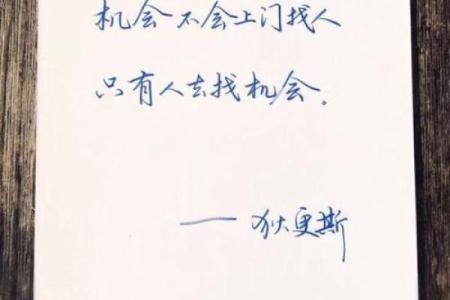 机会不会上门找人
只有人去找机会。
——狄更斯